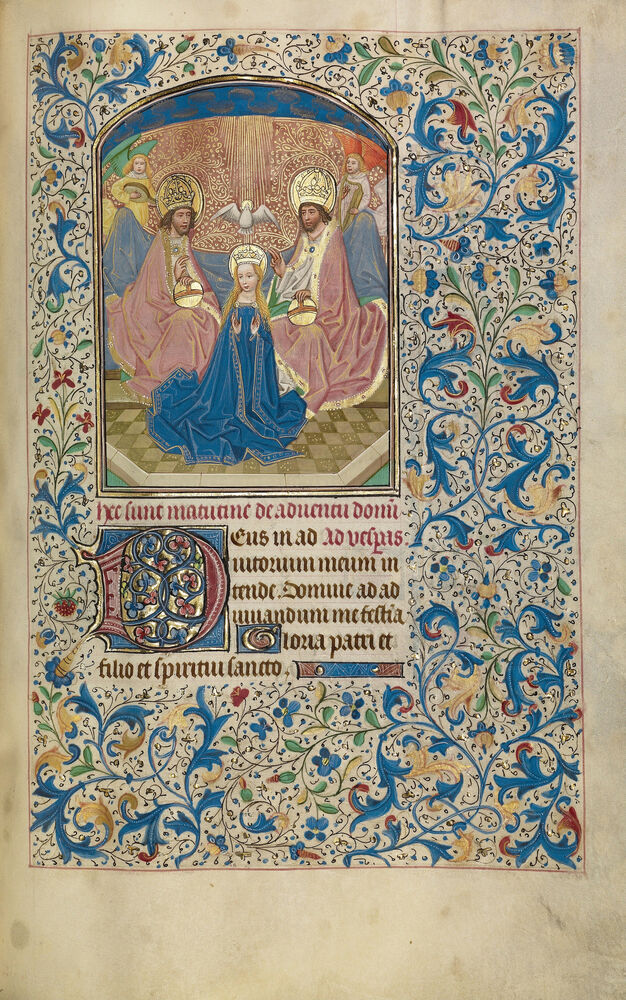 hec sunt matutine de adventu domini
Deus in ad Ad vesperas
iutorium meum in
tende. Domine ad ad
iuuandum me festina
Gloria patri et
filio et spiritui sancto.